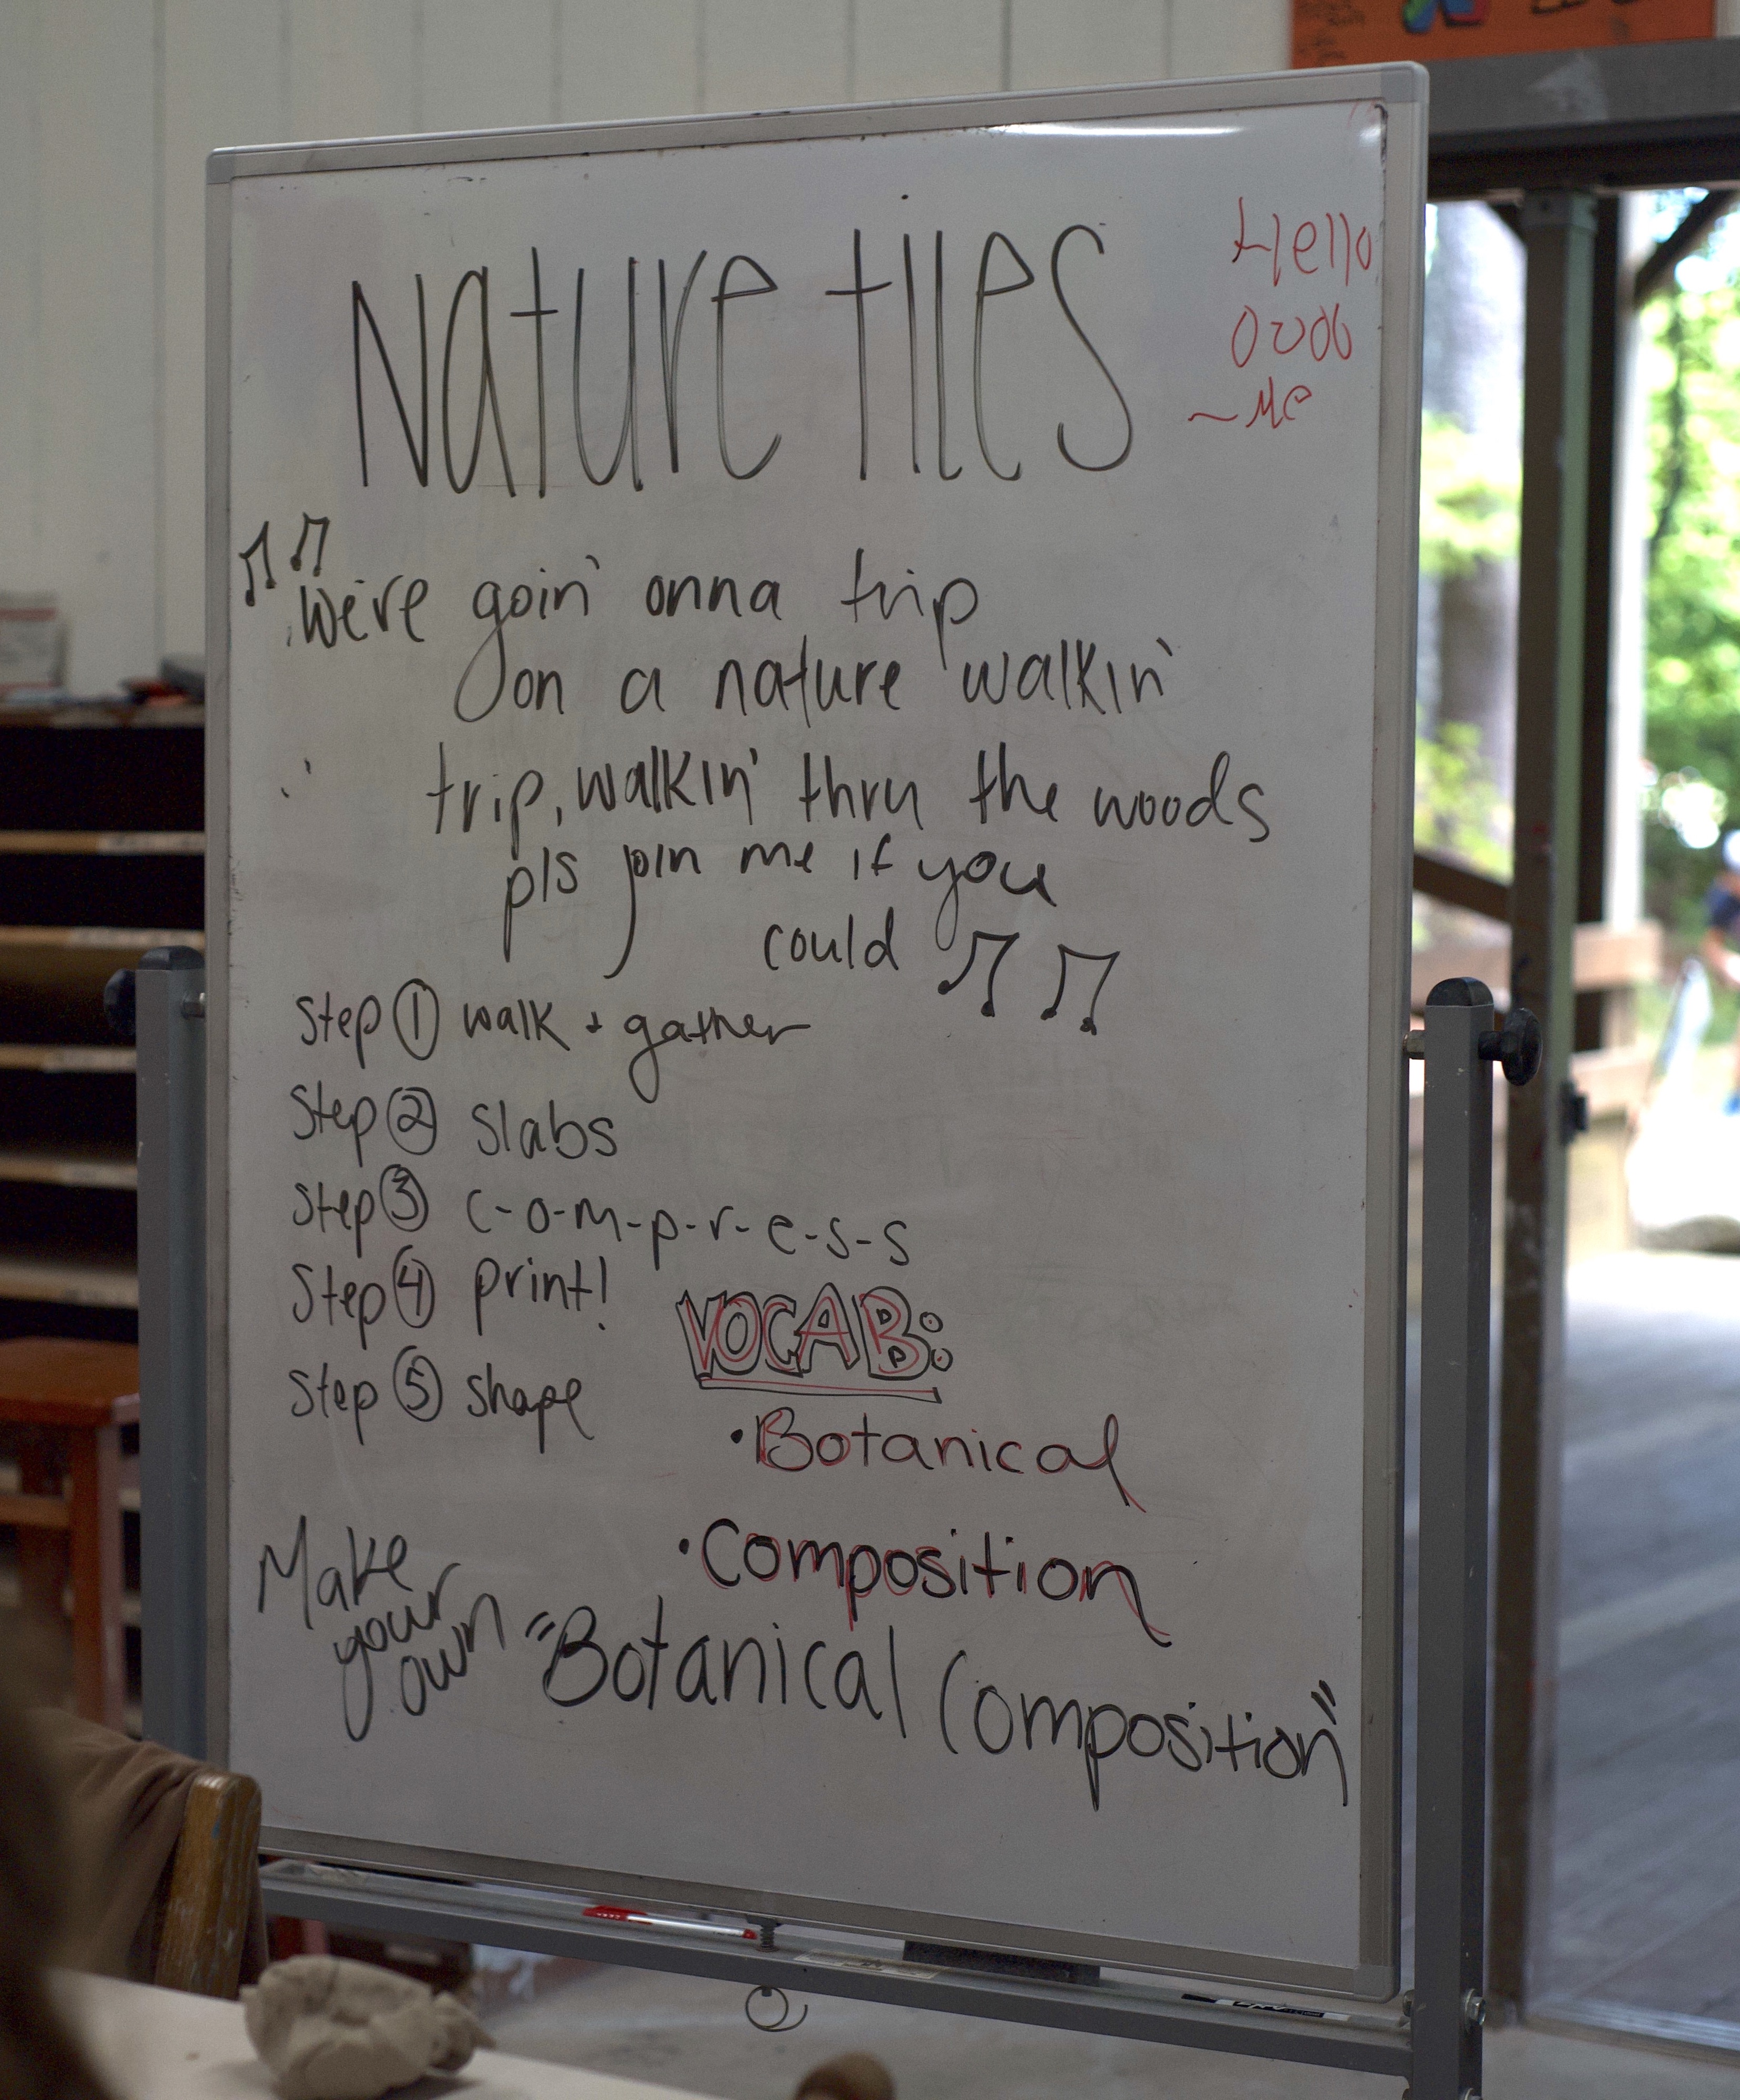 Nature tiles
Hello
~Me
We're goin' onna trip
on a nature walkin'
trip, walkin' thru the woods
pls join me if you
could
Step ① walk + gather
Step ② slabs
Step ③ c-o-m-p-r-e-s-s
Step ④ print!
Step ⑤ shape
VOCAB:
• Botanical
• Composition
Make
your
own "Botanical Composition"